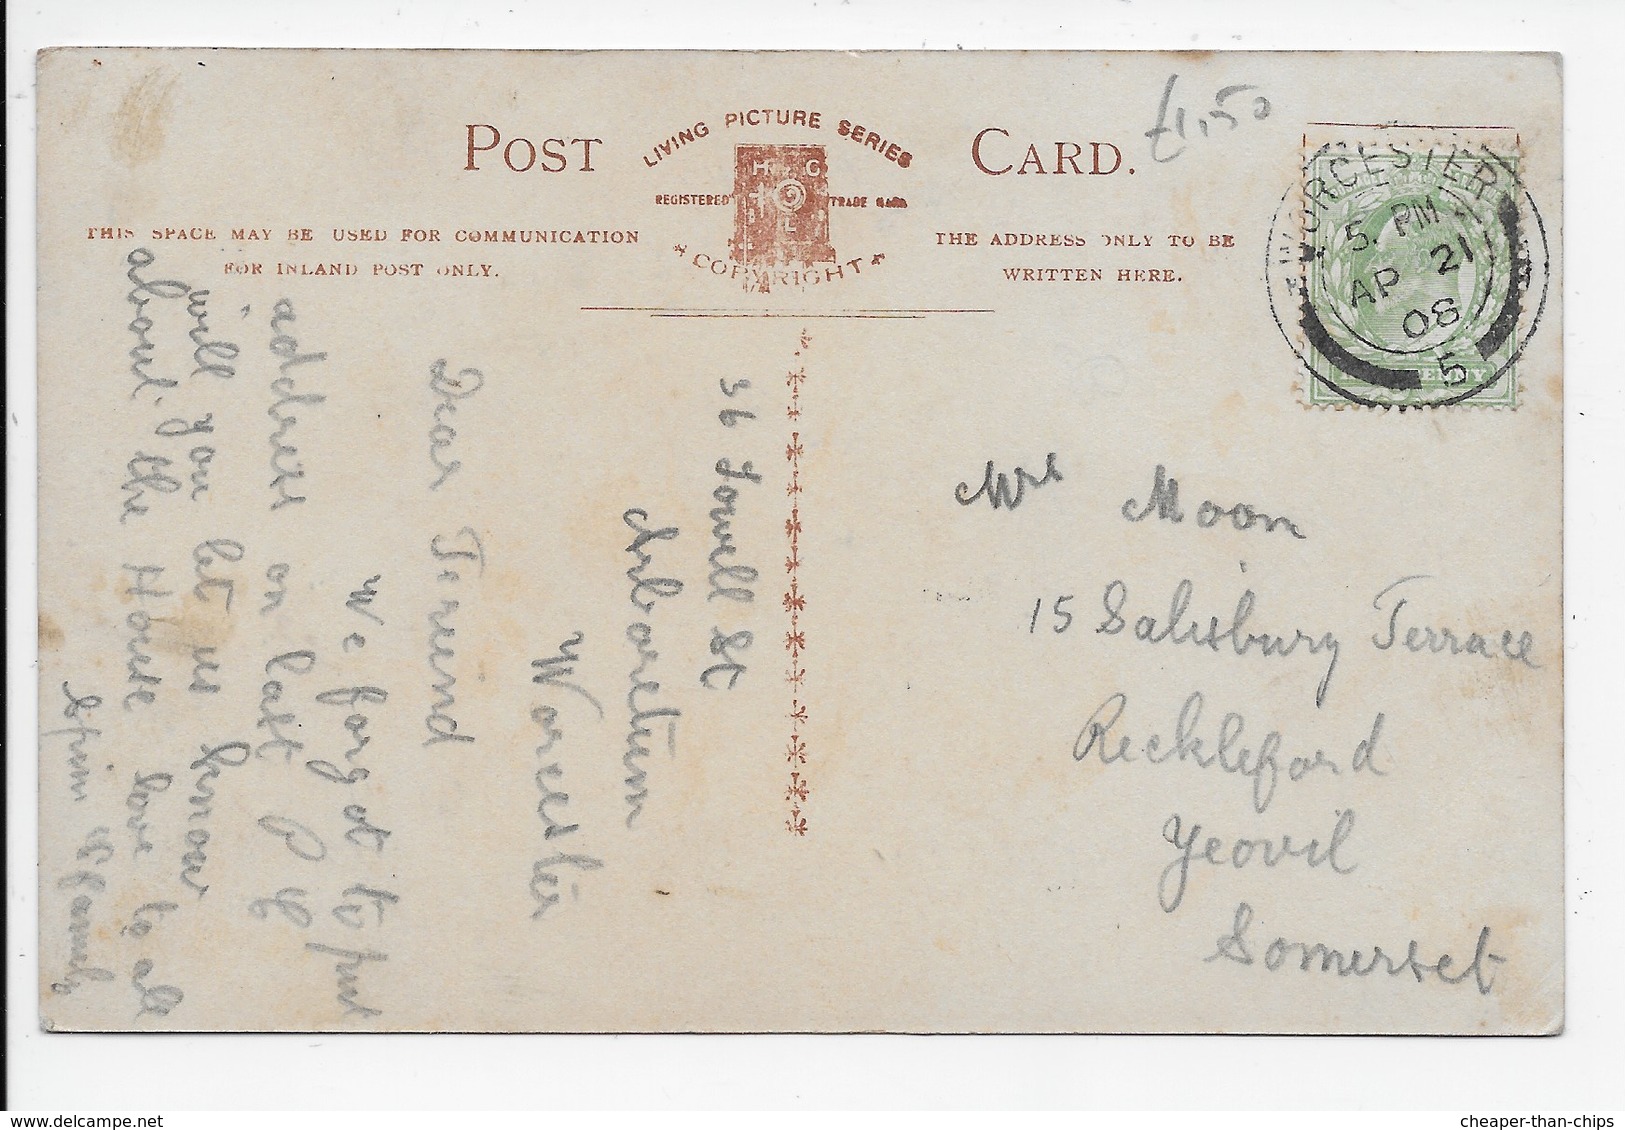 £1.50
POST CARD.
LIVING PICTURE SERIES
H G
L
REGISTERED TRADE MARK
COPYRIGHT
THIS SPACE MAY BE USED FOR COMMUNICATION
FOR INLAND POST ONLY.
THE ADDRESS ONLY TO BE
WRITTEN HERE.
WORCESTER
5. PM
AP 21
08
5
PENNY
36 Lowell St
Arboretum
Worcester
Dear Friend
We forgot to put
address on last P C
will you let us know
about the House love to all
from & family
Mrs Moon
15 Salisbury Terrace
Reckleford
Yeovil
Somerset
cheaper-than-chips